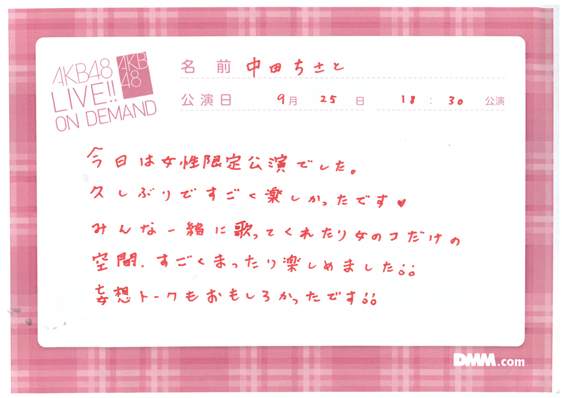 AKB48
LIVE!!
ON DEMAND
AKB
48
名 前 中田ちさと
公演日 9月 25日 18:30 公演
今日は女性限定公演でした。
久しぶりですごく楽しかったです♥
みんな一緒に歌ってくれたり女のコだけの
空間、すごくまったり楽しめました!!
妄想トークもおもしろかったです!!
DMM.com